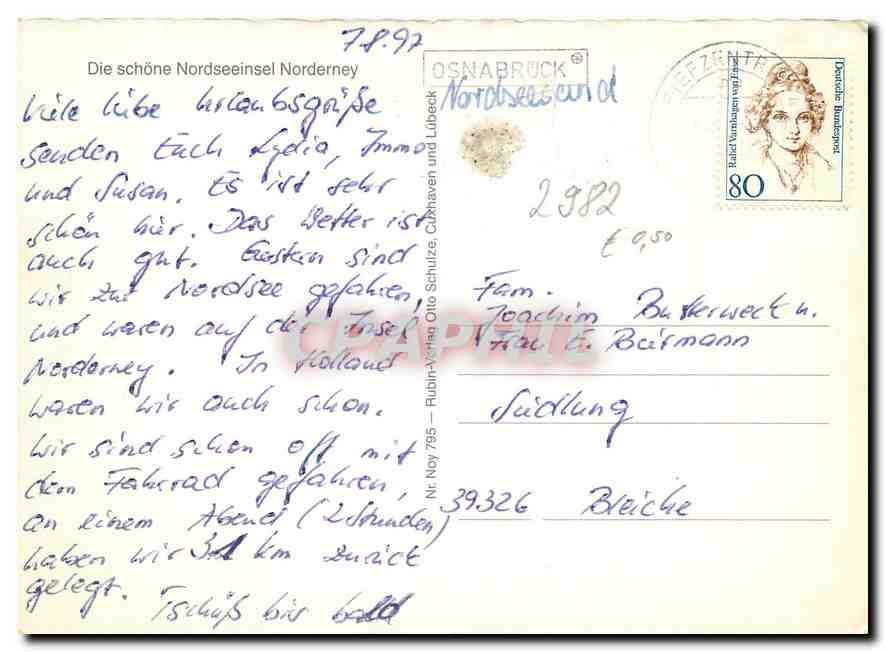 7.8.97
Die schöne Nordseeinsel Norderney
Viele liebe Urlaubsgrüße
senden Euch Lydia, Immo
und Susan. Es ist sehr
schön hier. Das Wetter ist
auch gut. Gestern sind
wir zur Nordsee gefahren,
und waren auf der Insel
Norderney. In Holland
waren wir auch schon.
Wir sind schon oft mit
dem Fahrrad gefahren,
an einem Abend (2 Stunden)
haben wir 31 km zurück
gelegt.
Tschüß bis bald
Nr. Noy 795 — Rubin-Verlag Otto Schulze, Cuxhaven und Lübeck
OSNABRÜCK
Nordseesand
BRIEFZENTR
Deutsche Bundespost
Rahel Varnhagen von Ense
80
2982
€ 0,50
Fam.
Joachim Butterweck u.
Frau E. Bärmann
Siedlung
39326 Bleiche
CPAPHIL